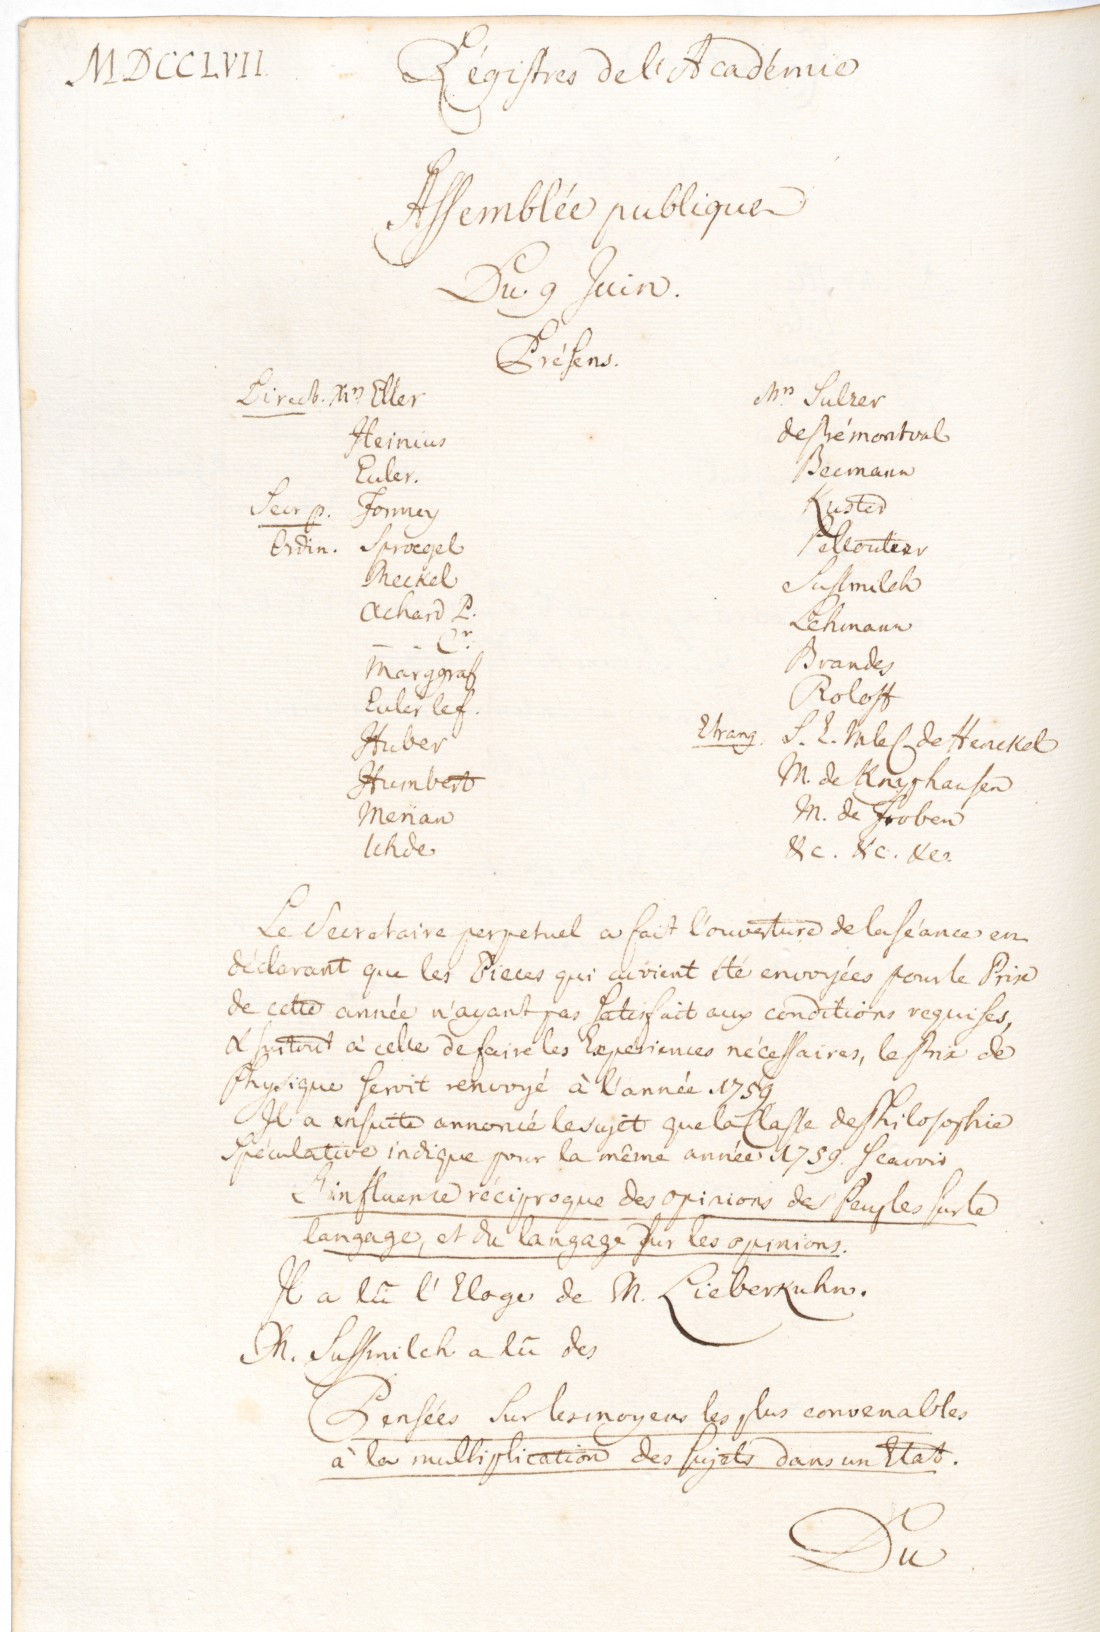 MDCCLVII.
Régistres de l'Académie
Assemblée publique
Du 9 Juin.
Présens.
Direct. Mrs Eller
Heinius
Euler.
Secr p. Formey
Ordin. Sproegel
Meckel
Achard P.
— - Cr.
Marggraf
Euler le f.
Huber
Humbert
Merian
Uhde
Mrs Sulzer
de Prémontval
Becmann
Kuster
Pelloutier
Sussmilch
Lehmann
Brandes
Roloff
Etrang. S. E. M le C. de Henckel
M. de Knyphausen
M. de Froben
&c. &c. &c.
Le Secretaire perpetuel a fait l'ouverture de la séance en
déclarant que les Pieces qui avient été envoyées pour le Prix
de cette année n'ayant pas satisfait aux conditions requises,
& surtout à celle de faire les Experiences nécessaires, le Prix de
Physique seroit renvoyé à l'année 1759
Il a ensuite annoncé le sujet que la Classe de Philosophie
Spéculative indique pour la même année 1759. scavoir
L'influence réciproque des opinions des Peuples sur le
langage, et du langage sur les opinions.
Il a lû l'Eloge de M. Lieberkuhn.
M. Sussmilch a lû des
Pensées sur les moyens les plus convenables
à la multiplication des sujets dans un Etat.
Du